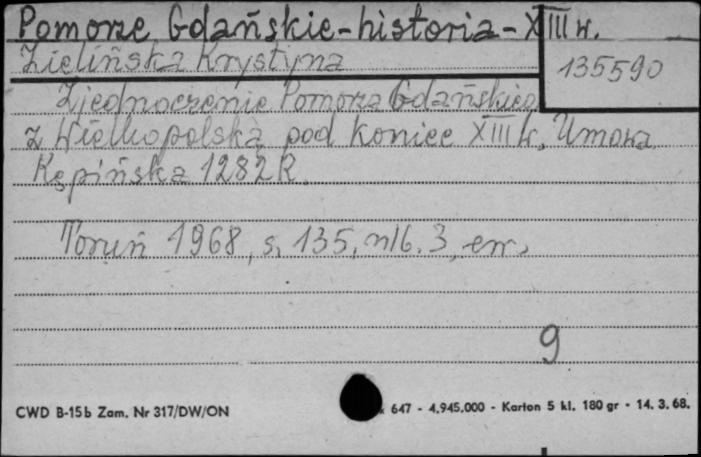 Pomorze Gdańskie-historia-XIII w.
Zielińska Krystyna
135590
Zjednoczenie Pomorza Gdańskiego
z Wielkopolską pod koniec XIII w. Umowa
Kępińska 1282 R.
Toruń 1968, s. 135, nlb. 3, err,
9
CWD B-15b Zam. Nr 317/DW/ON
647 - 4.945.000 - Karton 5 kl. 180 gr - 14. 3. 68.